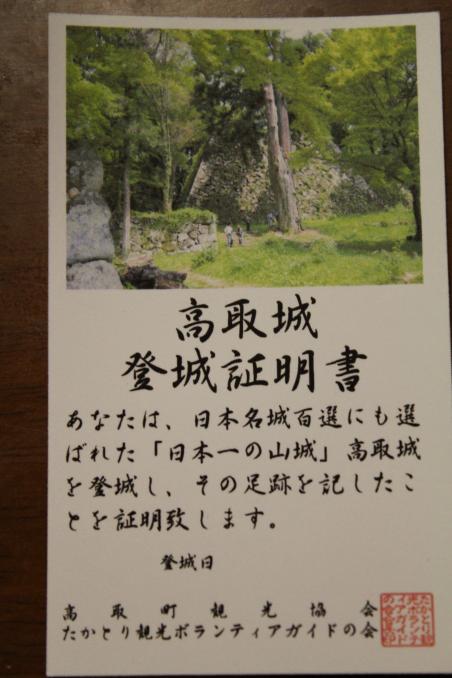 高取城
登城証明書
あなたは、日本名城百選にも選
ばれた「日本一の山城」高取城
を登城し、その足跡を記したこ
とを証明致します。
登城日
高取町観光協会
たかとり観光ボランティアガイドの会